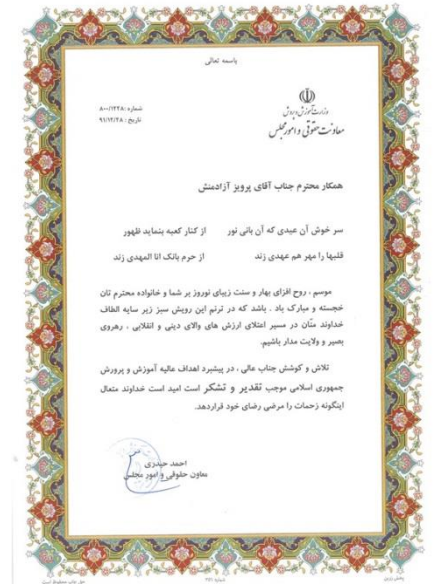 باسمه تعالی
وزارت آموزش و پرورش
معاونت حقوقی و امور مجلس
شماره: ۸۰۰/۱۲۲۸
تاریخ: ۹۱/۱۲/۲۸
همکار محترم جناب آقای پرویز آزادمنش
سر خوش آن عیدی که آن بانی نور از کنار کعبه بنماید ظهور
قلبها را مهر هم عهدی زند از حرم بانک انا المهدی زند
موسم ، روح افزای بهار و سنت زیبای نوروز بر شما و خانواده محترم تان
خجسته و مبارک باد . باشد که در ترنم این رویش سبز زیر سایه الطاف
خداوند منّان در مسیر اعتلای ارزش های والای دینی و انقلابی ، رهروی
بصیر و ولایت مدار باشیم.
تلاش و کوشش جناب عالی ، در پیشبرد اهداف عالیه آموزش و پرورش
جمهوری اسلامی موجب تقدیر و تشکر است امید است خداوند متعال
اینگونه زحمات را مرضی رضای خود قراردهد.
احمد حیدری
معاون حقوقی و امور مجلس
حق چاپ محفوظ است